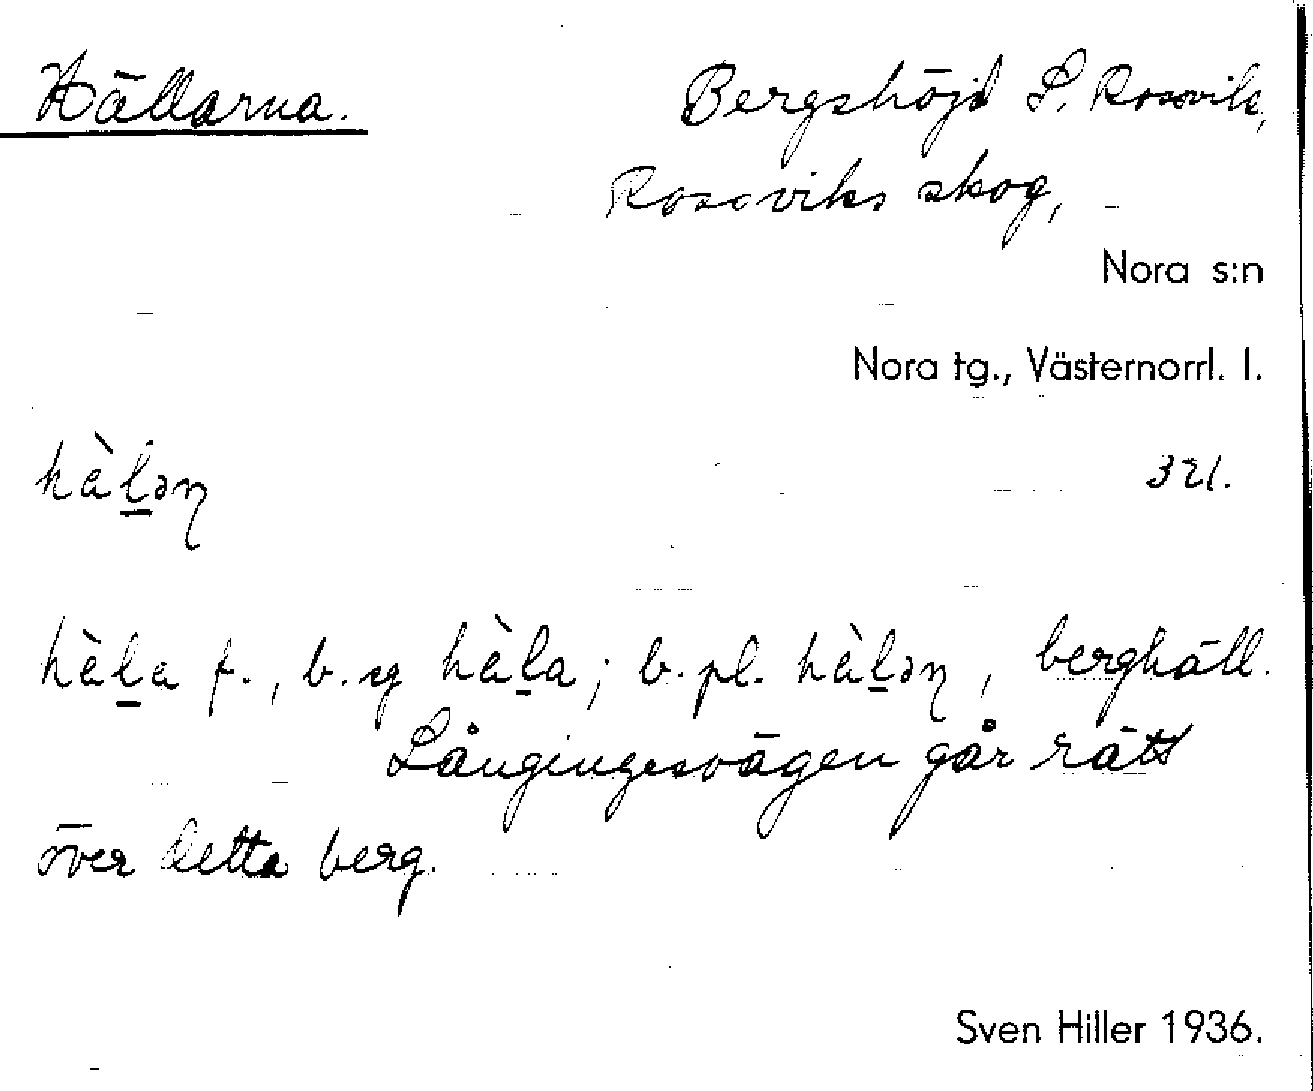 Hällarna.
Bergshöjd S. Rossvik,
Rossviks skog,
Nora s:n
Nora tg., Västernorrl. l.
hàl̲ən
321.
hèl̲a f., b. sg hèl̲a; b. pl. hàl̲ən, berghäll.
Långingesvägen går rätt
över detta berg.
Sven Hiller 1936.